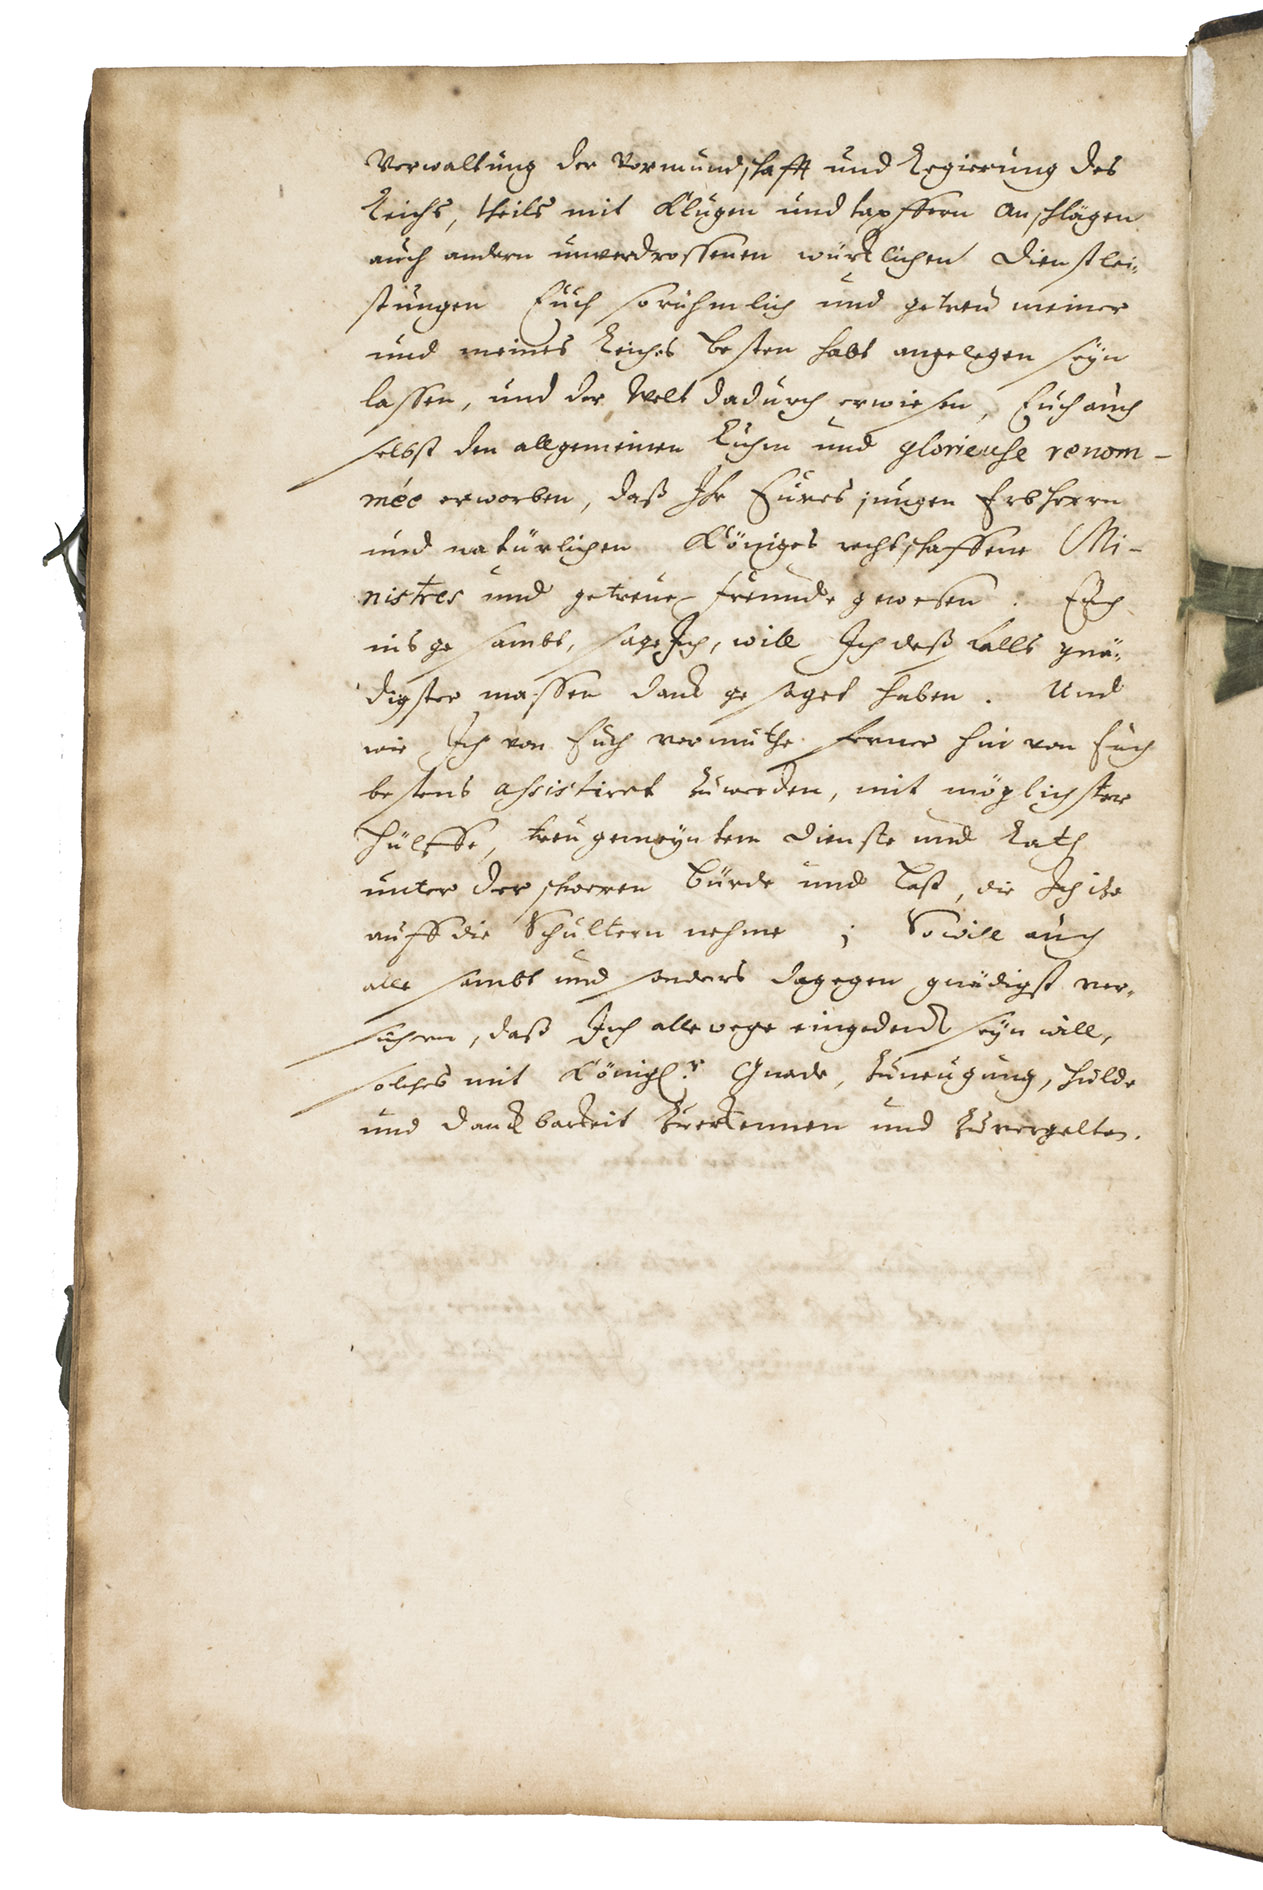 Verwaltung der Vormundschafft und Regierung des
Reichs, theils mit Klugen und tapffern Anschlägen
auch andern unverdrossenen würcklichen Dienstlei-
stungen Euch so rühmlich und getreu meiner
und meines Reiches besten habt angelegen seyn
lassen, und der Welt dadurch erwiesen, Euch auch
selbst den allgemeinen Ruhm und glorieuse renom-
mée erworben, daß Ihr Eures jungen Erbherrn
und natürlichen Königes rechtschaffene Mi-
nistres und getreue freunde gewesen. Euch
ins gesambt, sage Ich, will Ich deß falls gnä-
digster massen danck gesaget haben. Und
wie Ich von Euch vermuthe ferner hin von Euch
bestens assistiret zu werden, mit möglichster
Hülffe, treugemeyntem Dienste und Rath
unter der schweren Bürde und Last, die Ich itzo
auff die Schultern nehme; So will auch
alle sambt und sonders dagegen gnädigst ver-
sichern, daß Ich allewege eingedenck seyn will,
solches mit Königl.r Gnade, Zuneugung, Hulde
und Danckbarkeit zuerkennen und zuvergelten.